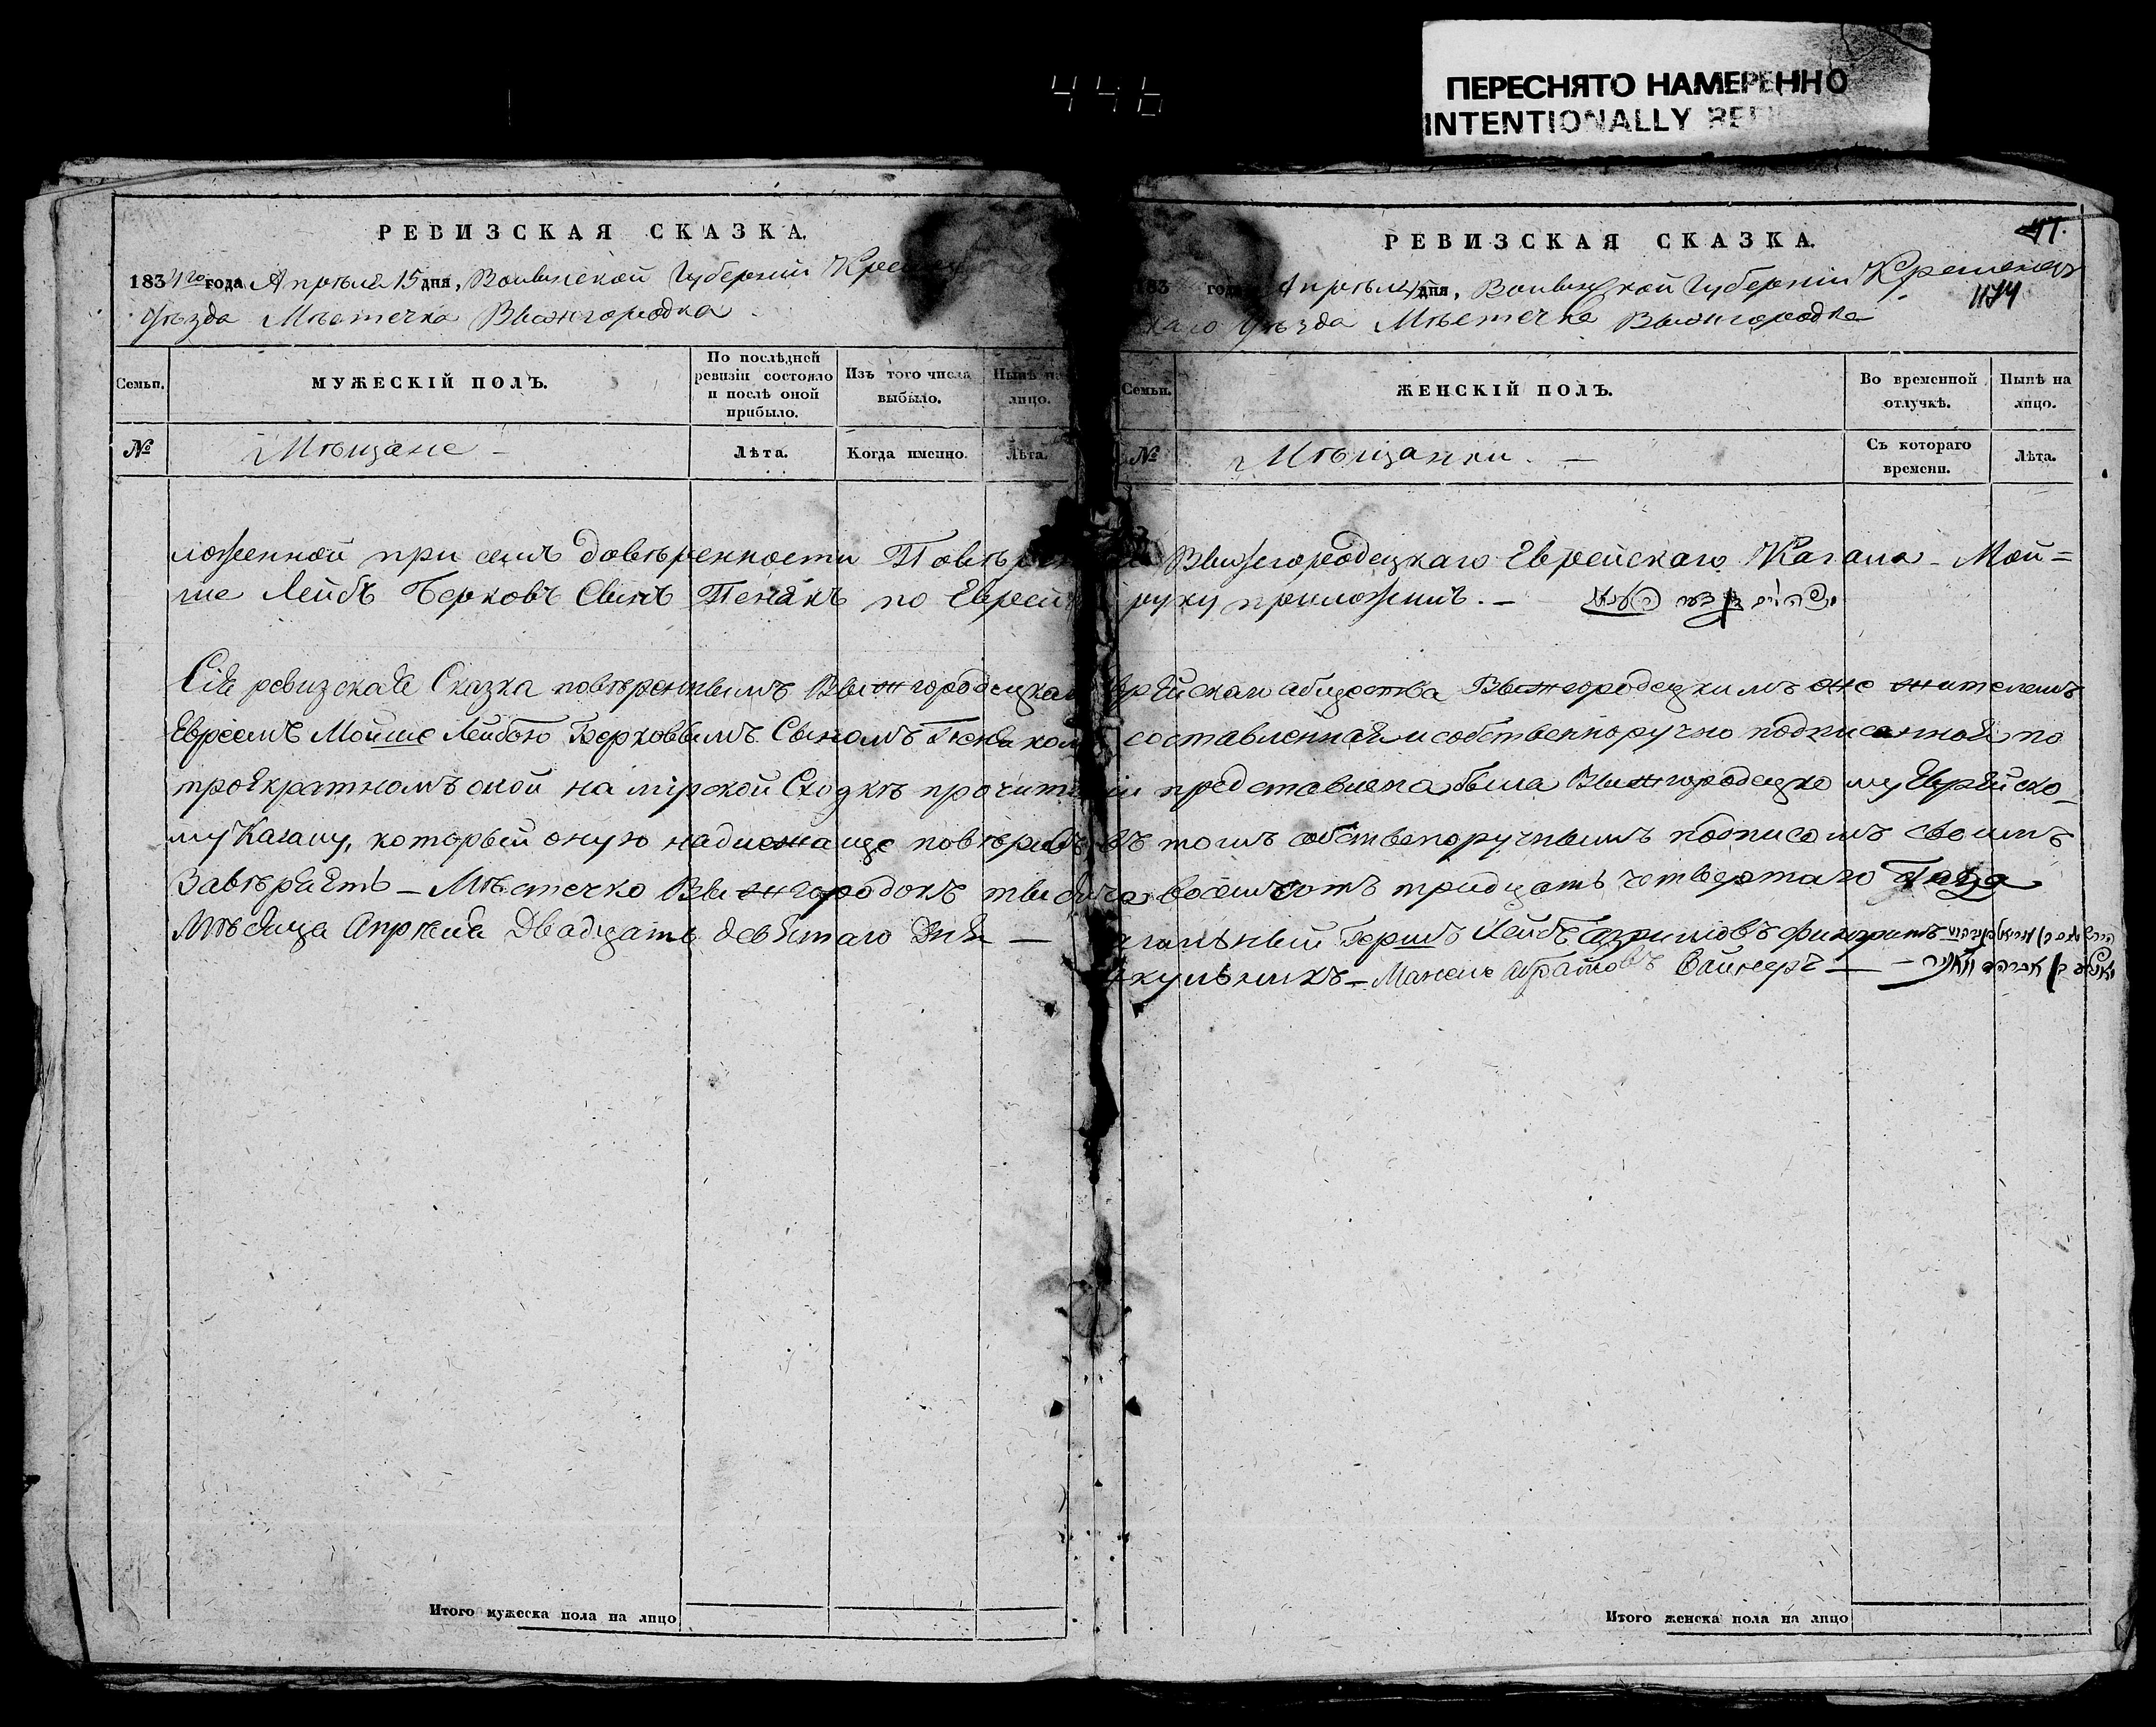 446
ПЕРЕСНЯТО НАМЕРЕННО
INTENTIONALLY
РЕВИЗСКАЯ СКАЗКА.
1834го года Апрѣля 15 дня, Волынской Губерніи
Уѣзда Мѣстечка Выжгородка
Семьи.
МУЖЕСКІЙ ПОЛЪ.
По послѣдней ревизіи состояло и послѣ оной прибыло.
Изъ того числа выбыло.
Нынѣ на лицо.
№
Мѣщане
Лѣта.
Когда именно.
Лѣта.
РЕВИЗСКАЯ СКАЗКА.
47.
183 года Апрѣля дня, Волынской Губерніи Кременец
1174
каго Уѣзда Мѣстечка Выжгородка
Семьи.
ЖЕНСКІЙ ПОЛЪ.
Во временной отлучкѣ.
Нынѣ на лицо.
№
Мѣщанки.
Съ котораго времени.
Лѣта.
ложенной при семъ довѣренности Выжгородецкаго Еврейскаго Кагала Мой=
ше Лейбъ Берковъ Сынъ по руку приложилъ. –
Сія ревизская Сказка повѣреннымъ общества Выжгородецкимъ же жителемъ
Евреемъ Мойше Лейбою Берковымъ Сыномъ составленная и собственноручно подписанная по
троекратномъ оной на мірской Сходкѣ представлена была Выжгородецкому Еврейско-
му Кагалу, который оную надлежаще въ томъ собственоручнымъ подписомъ своимъ
Завѣряетъ – Мѣстечко Выжгородокъ тысяча восемсотъ тридцать четвертаго Года
Мѣсяца Апрѣля Двадцать девятаго Дня — Лейбъ
Вайнеръ —
Итого мужеска пола на лицо
Итого женска пола на лицо